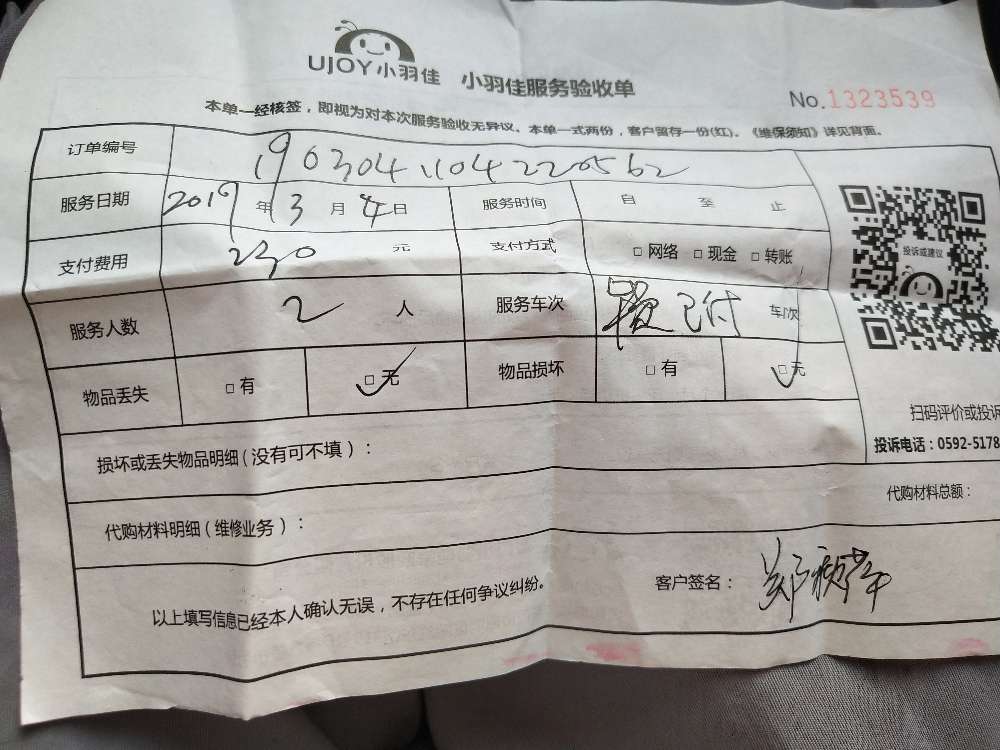 UJOY小羽佳 小羽佳服务验收单
No.1323539
本单一经核签，即视为对本次服务验收无异议。本单一式两份，客户留存一份(红)。《维保须知》详见背面。
订单编号 1903041104220562
服务日期 2019年3月4日 服务时间 自 至 止
支付费用 230 元 支付方式 □网络 □现金 □转账
服务人数 2 人 服务车次 已付 车/次
物品丢失 □有 □无 物品损坏 □有 □无
投诉或建议
扫码评价或投诉
投诉电话：0592-5178
损坏或丢失物品明细(没有可不填)：
代购材料明细(维修业务)：
代购材料总额：
以上填写信息已经本人确认无误，不存在任何争议纠纷。
客户签名：郑